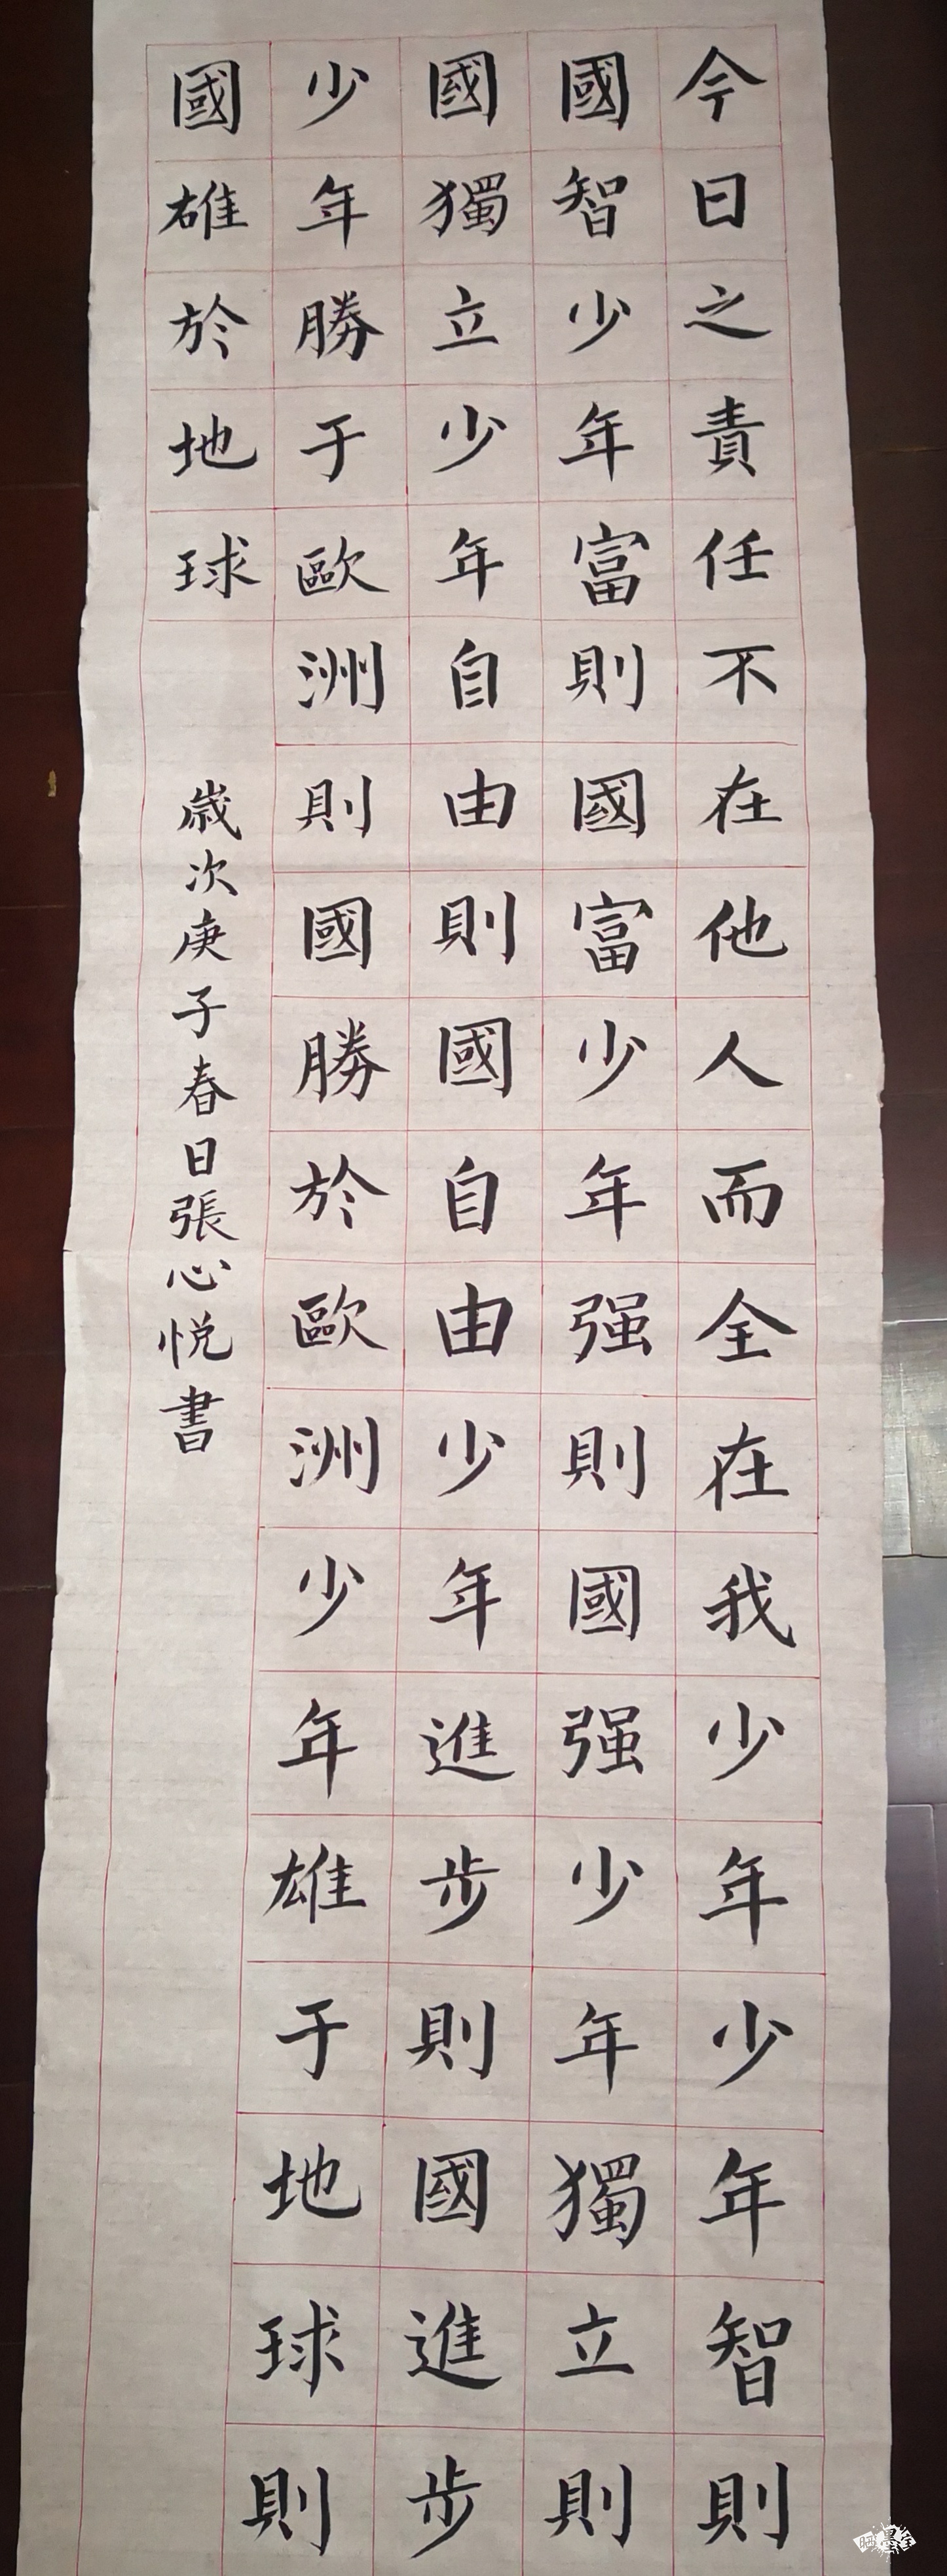 今日之責任不在他人而全在我少年少年智則
國智少年富則國富少年强則國强少年獨立則
國獨立少年自由則國自由少年進步則國進步
少年勝于歐洲則國勝於歐洲少年雄于地球則
國雄於地球
歲次庚子春日張心悦書